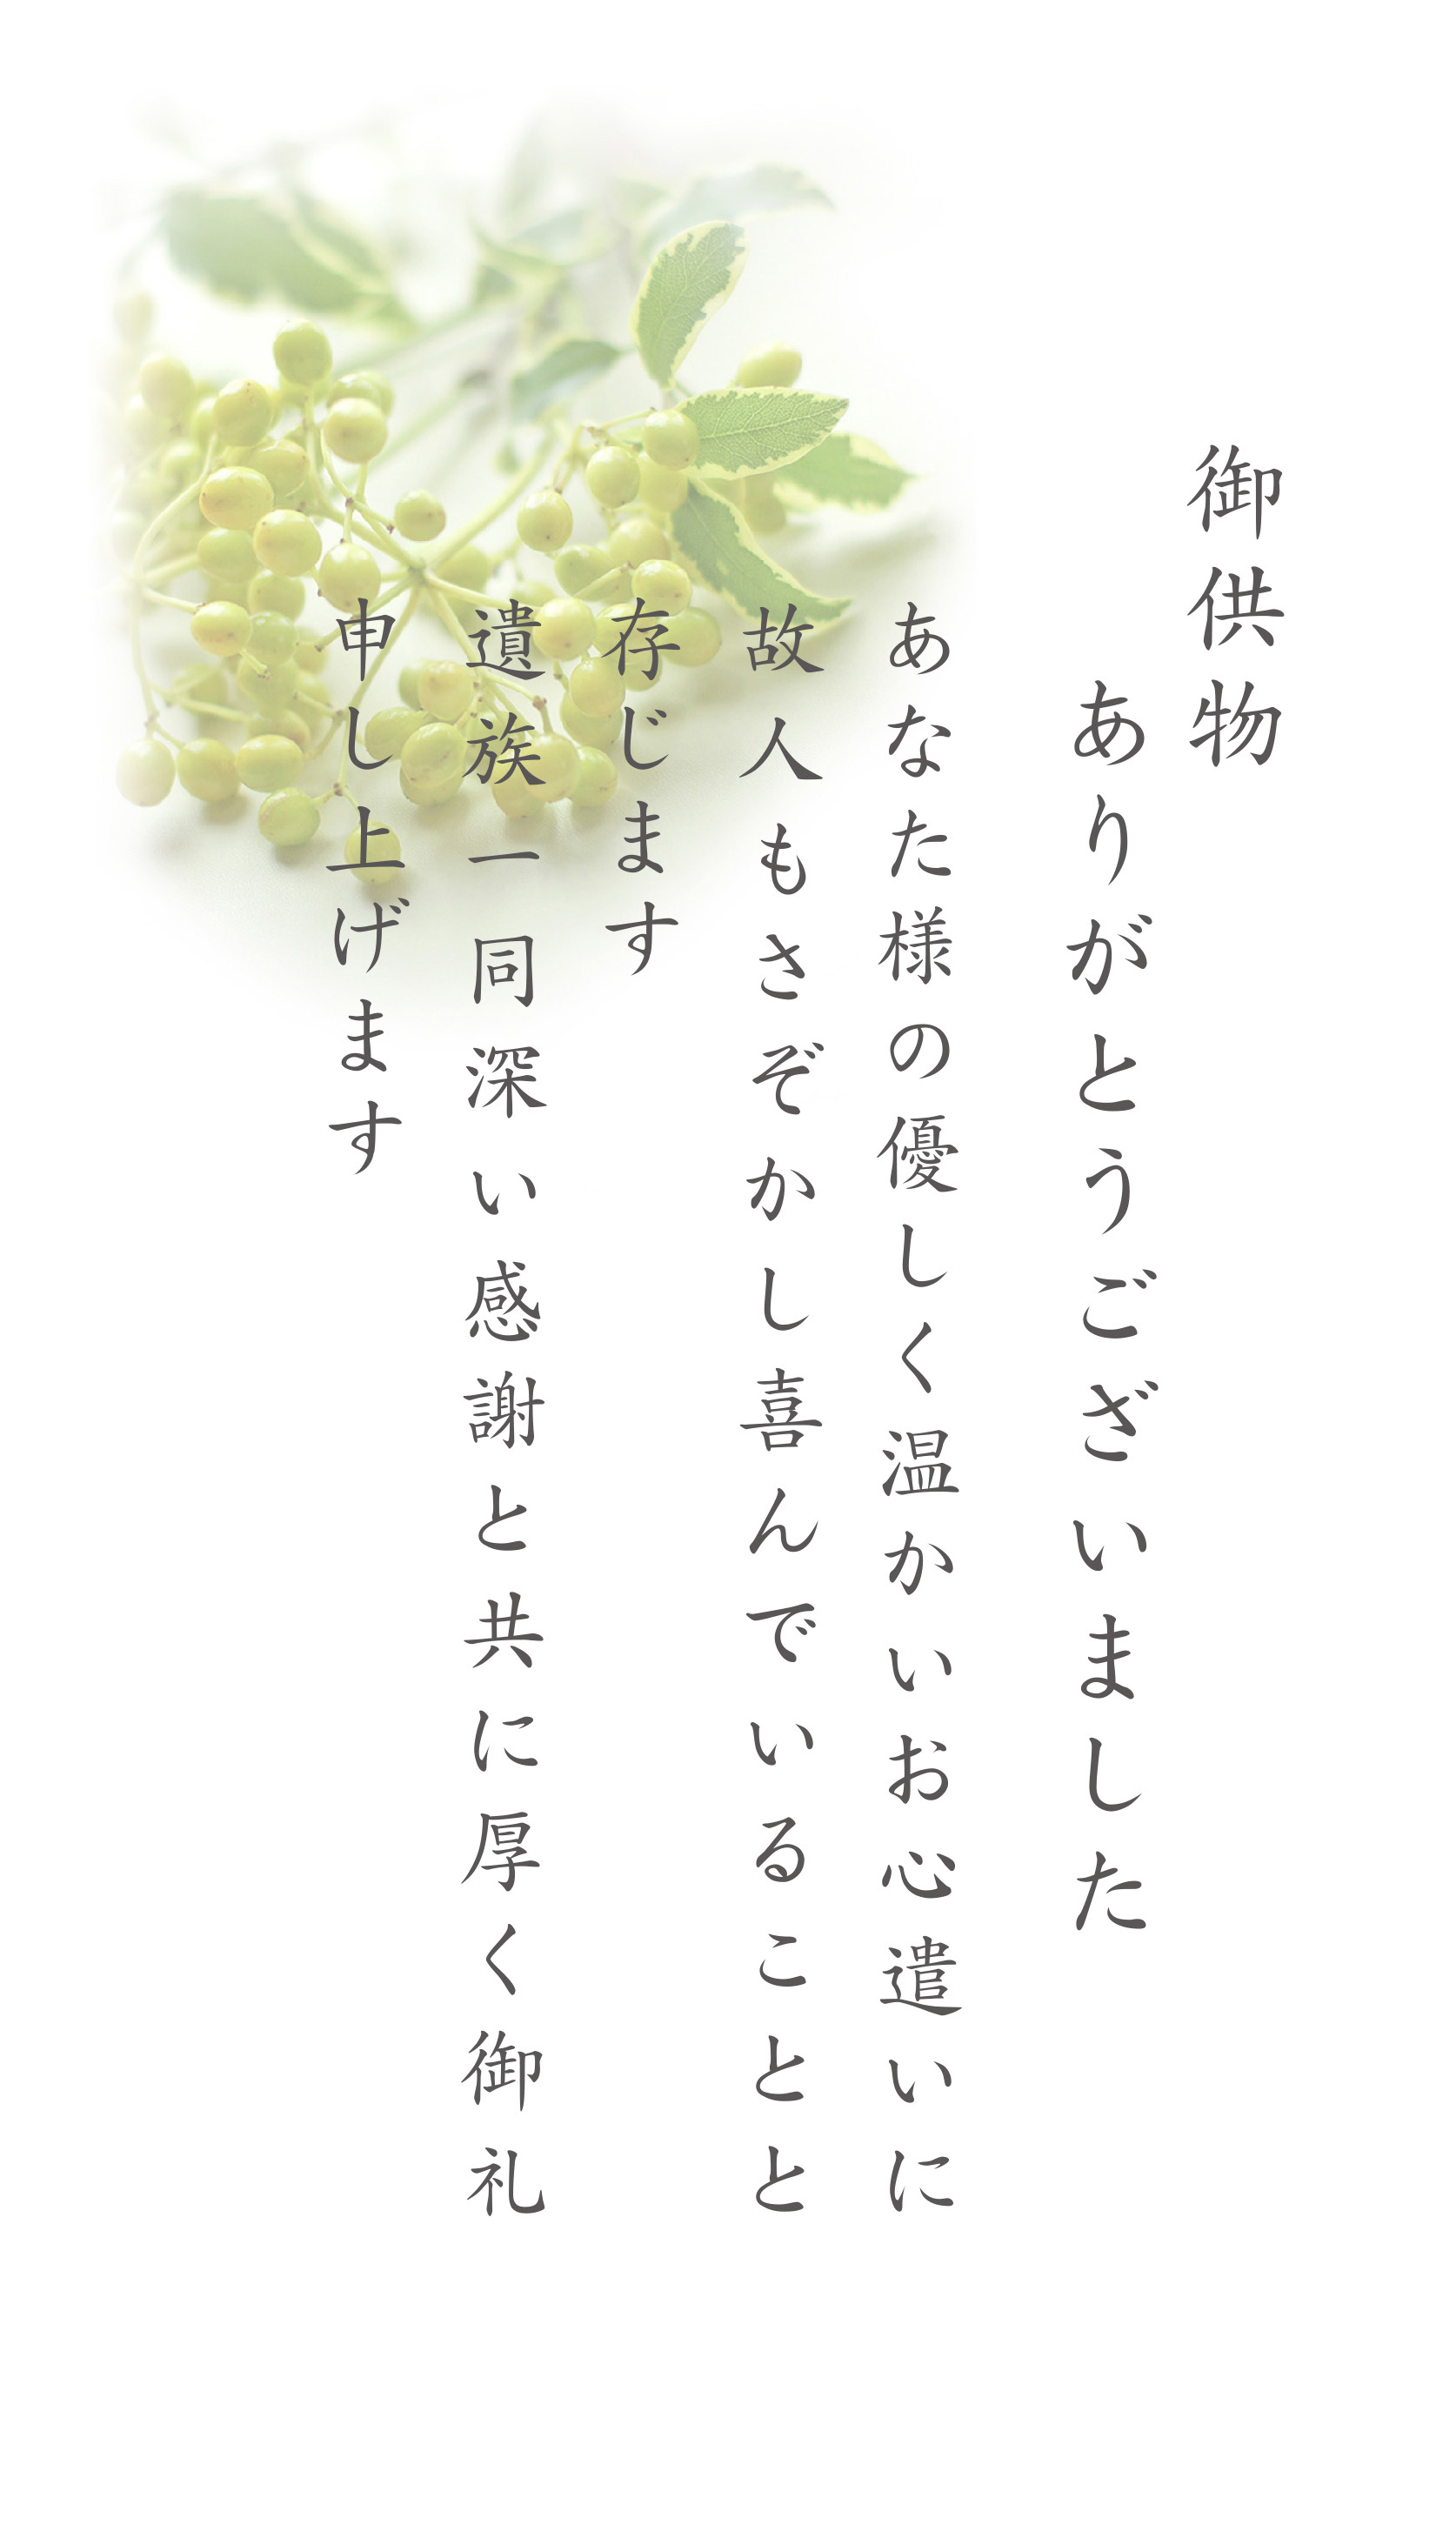 御供物
ありがとうございました
あなた様の優しく温かいお心遣いに
故人もさぞかし喜んでいることと
存じます
遺族一同深い感謝と共に厚く御礼
申し上げます